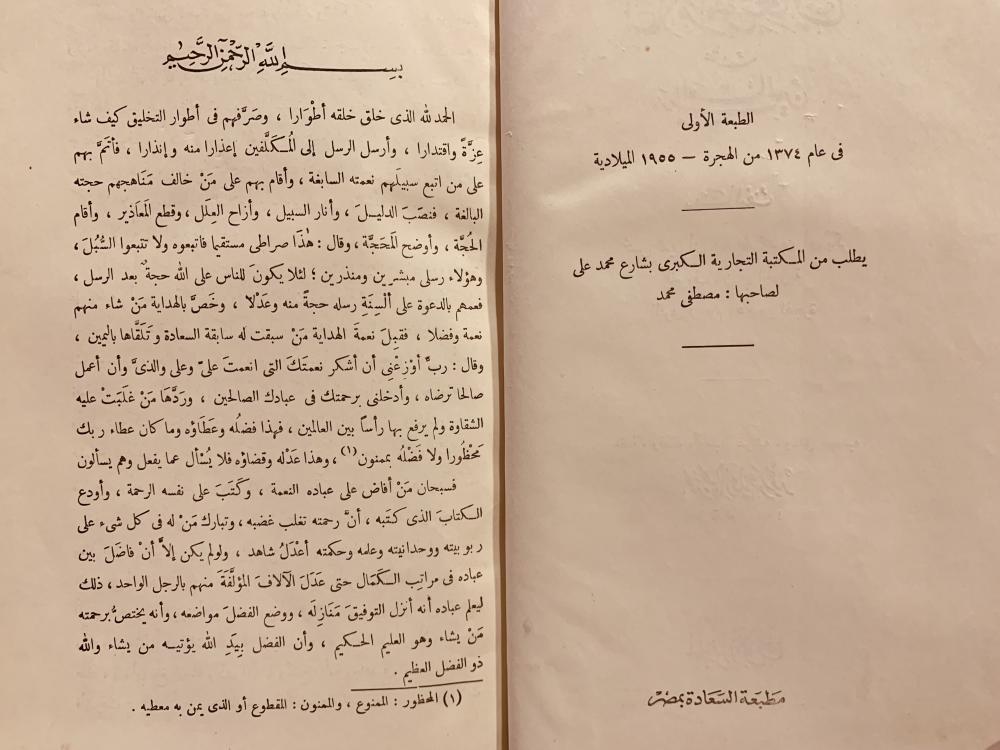 الطبعة الأولى
فى عام ١٣٧٤ من الهجرة — ١٩٥٥ الميلادية
يطلب من المكتبة التجارية الكبرى بشارع محمد على
لصاحبها : مصطفى محمد
مطبعة السعادة بمصر
بسم الله الرحمن الرحيم
الحمد لله الذى خلق خلقه أطْوَارا ، وصَرَّفهم فى أطوار التخليق كيف شاء
عِزَّةً واقتدارا ، وأرسل الرسل إلى المُكَلَّفين إعذارا منه وإنذارا ، فأتمَّ بهم
على من اتبع سبيلَهم نعمته السابغة ، وأقام بهم على مَنْ خالف مَنَاهجهم حجته
البالغة ، فنصَبَ الدليل ، وأنار السبيل ، وأزاح العِلَل ، وقطع المَعَاذير ، وأقام
الحُجَّة ، وأوضح المَحَجَّة ، وقال : هٰذَا صراطى مستقيما فاتبعوه ولا تتبعوا السُّبُلَ ،
وهؤلاء رسلى مبشرين ومنذرين ؛ لئلا يكونَ للناس على الله حجةٌ بعد الرسل ،
فعمهم بالدعوة على ألْسِنَةِ رسله حجةً منه وعَدْلاً ، وخَصَّ بالهداية مَنْ شاء منهم
نعمة وفضلا ، فقبِلَ نعمةَ الهداية مَنْ سبقت له سابقة السعادة وتَلَقَّاها باليمين ،
وقال : ربِّ أوْزِعْنِى أن أشكر نعمتَكَ التى انعمتَ علىّ وعلى والدَىَّ وأن أعمل
صالحا ترضاه ، وأدخلنى برحمتك فى عبادك الصالحين ، ورَدَّهَا مَنْ غلبَتْ عليه
الشقاوة ولم يرفع بها رأساً بين العالمين ، فهذا فضلُه وعَطَاؤه وما كان عطاء ربك
مَحْظُورا ولا فَضْلُه بممنون(١) ، وهذا عَدْله وقضاؤه فلا يُسْأل عما يفعل وهم يسألون
فسبحان مَنْ أفاض على عباده النعمة ، وكَتَبَ على نفسه الرحمة ، وأودع
الكتابَ الذى كتَبه ، أنَّ رحمته تغلب غضبه ، وتبارك مَنْ له فى كل شىء على
ربوبيته ووحدانيته وعلمه وحكمته أعْدَلُ شاهد ، ولو لم يكن إلاَّ أنْ فاضَلَ بين
عباده فى مراتِب الكَمَال حتى عَدَلَ الآلافَ المؤلَّفَةَ منهم بالرجل الواحد ، ذلك
ليعلم عباده أنه أنزل التوفيقَ مَنَازِلَه ، ووضع الفضلَ مواضعه ، وأنه يختصُّ برحمته
مَنْ يشاء وهو العليم الحكيم ، وأن الفضل بِيَدِ الله يؤتيه من يشاء والله
ذو الفضل العظيم .
(١) المحظور : الممنوع ، والممنون : المقطوع أو الذى يمن به معطيه .